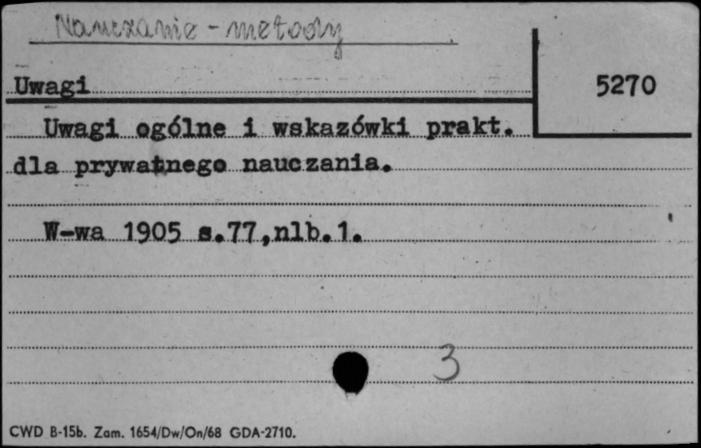 Nauczanie - metody
Uwagi
5270
Uwagi ogólne i wskazówki prakt.
dla prywatnego nauczania.
W-wa 1905 s.77,nlb.1.
3
CWD B-15b. Zam. 1654/Dw/On/68 GDA-2710.